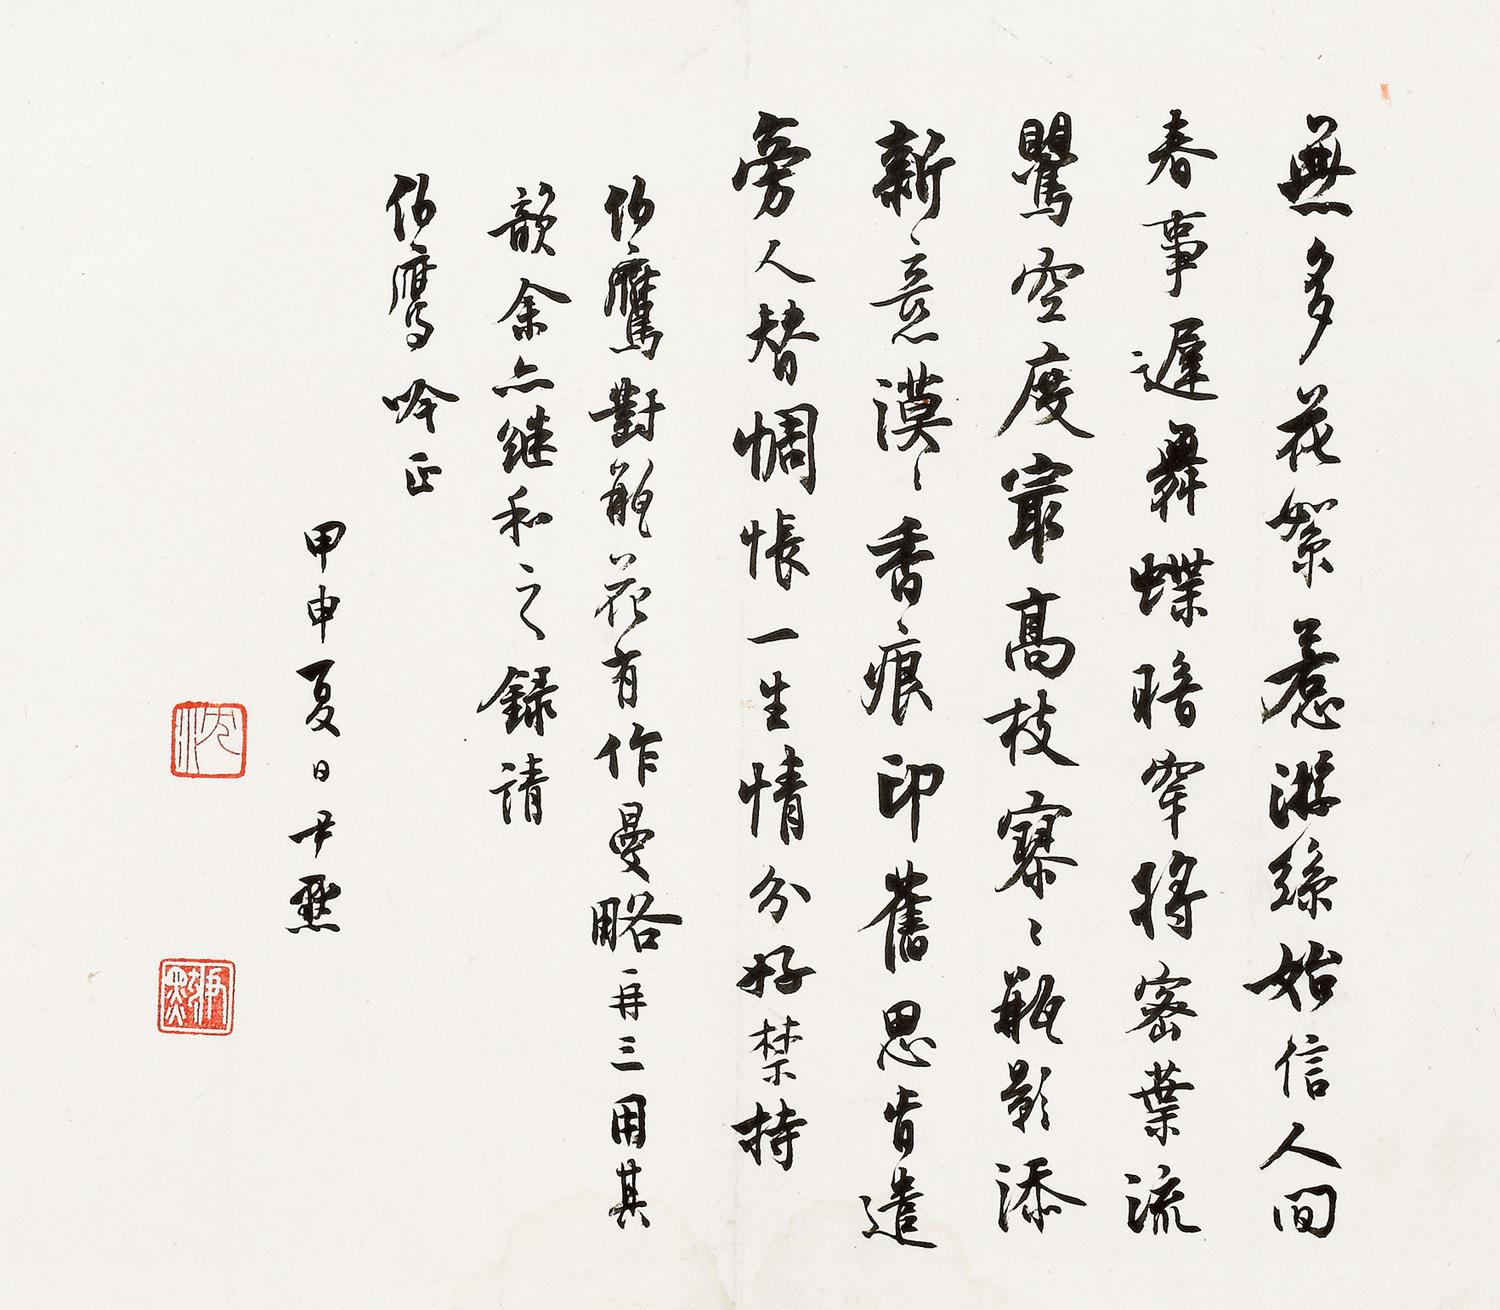 無多花絮惹游絲始信人間
春事遲舞蝶暗牽將密葉流
鶯空度最高枝寥〻瓶影添
新意漠〻香痕印舊思肯遣
旁人替惆悵一生情分好禁持
伯鷹對瓶花有作曼略再三用其
韻余亦繼和之錄請
伯鷹吟正
甲申夏日尹默
沈
尹默